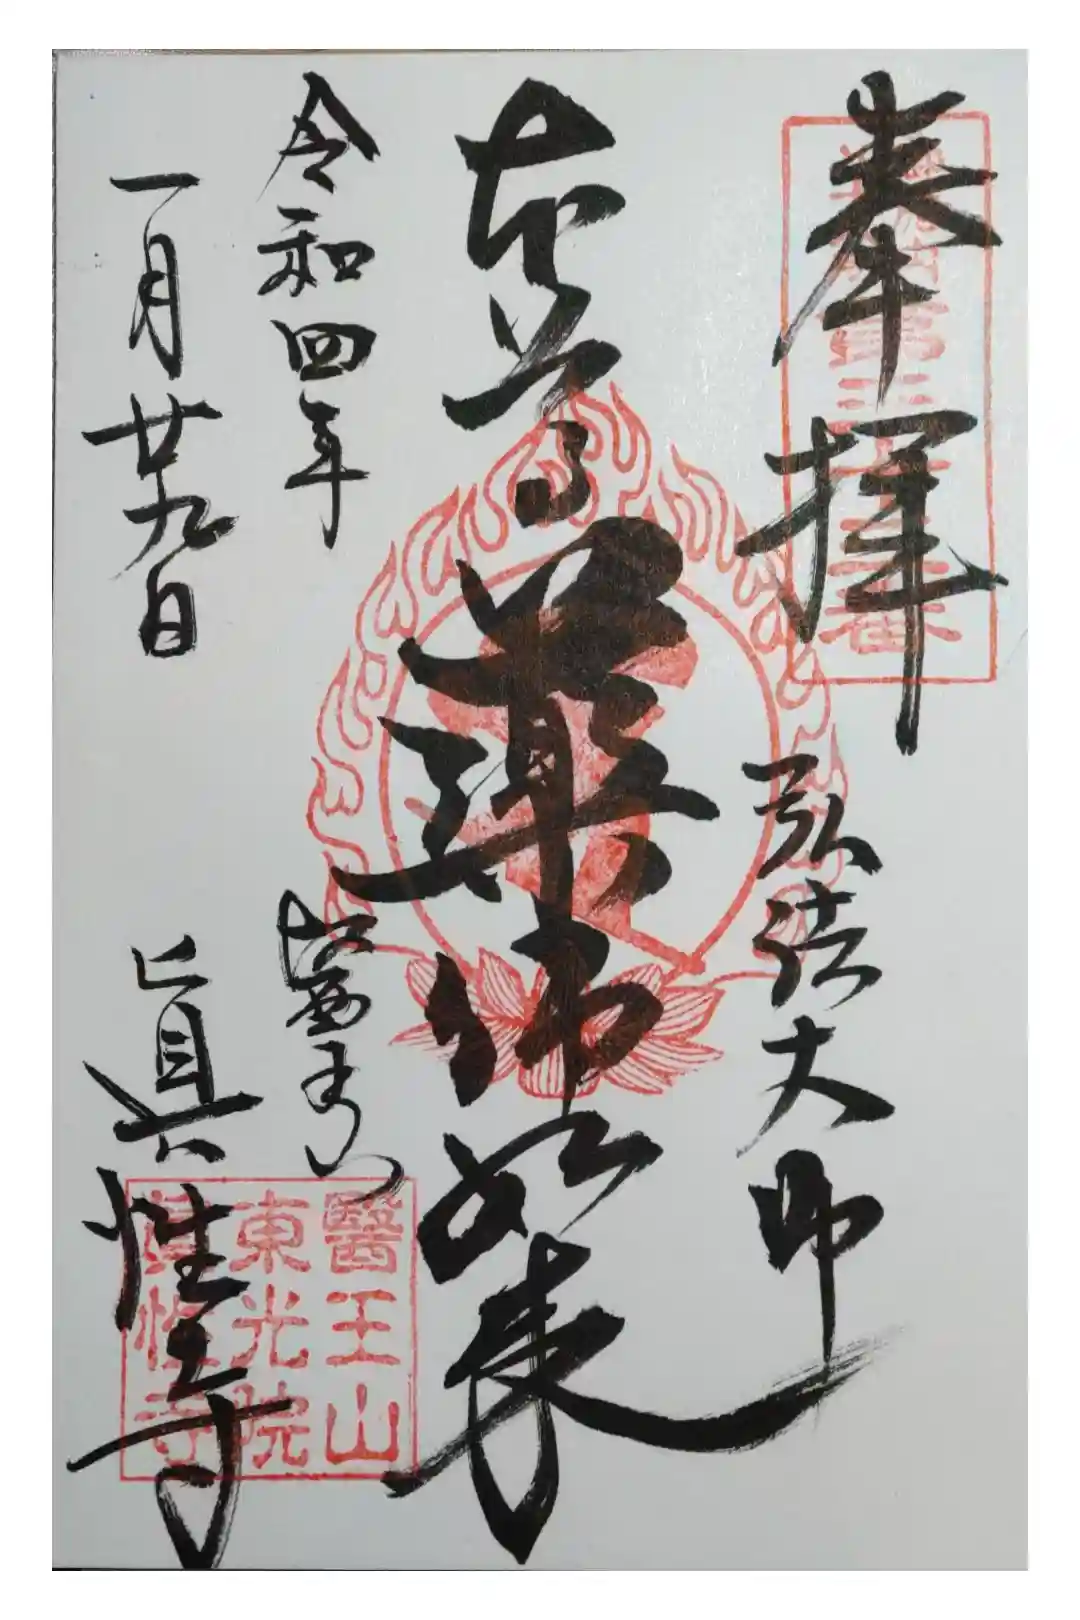 奉拝
弘法大師
本尊
薬師如来
令和四年
一月廿九日
眞性寺
醫王山
東光院
眞性寺